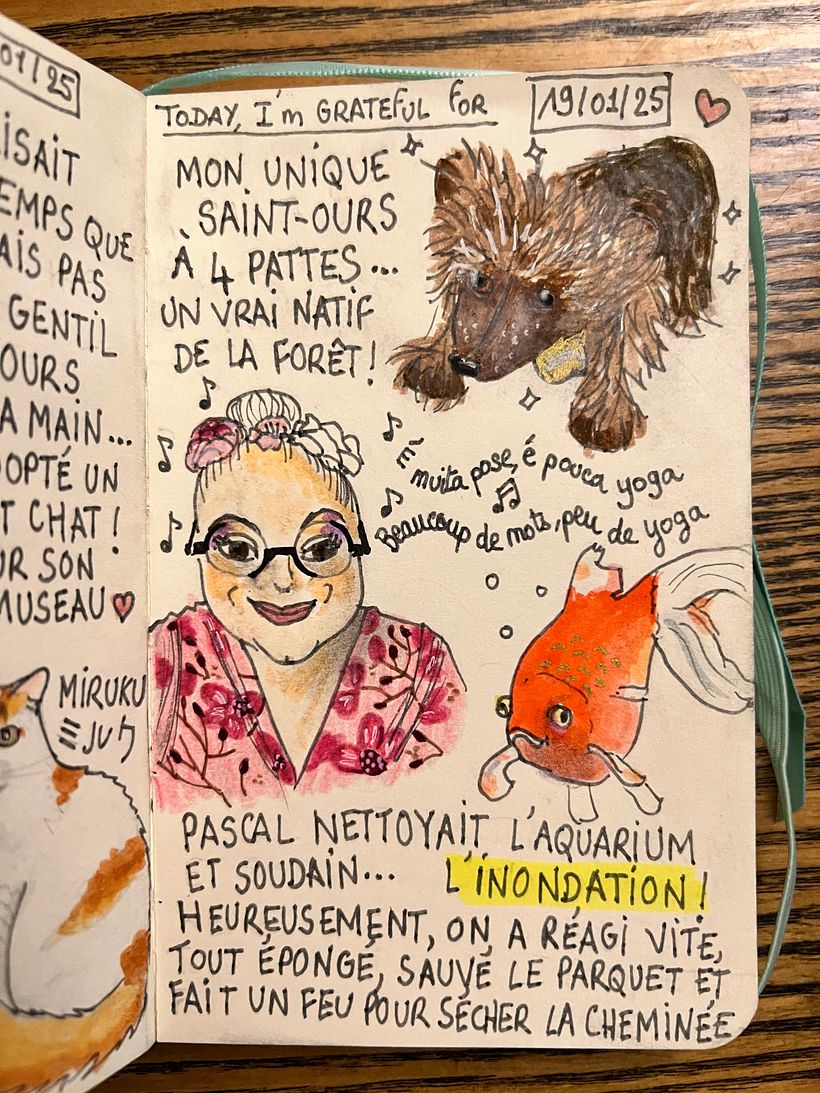 01/25
ISAIT
EMPS QUE
AIS PAS
GENTIL
OURS
A MAIN...
OPTÉ UN
T CHAT!
UR SON
MUSEAU
MIRUKU
ミルク
TODAY, I'm GRATEFUL FOR
19/01/25
MON UNIQUE
SAINT-OURS
À 4 PATTES...
UN VRAI NATIF
DE LA FORÊT!
É muita pose, é pouca yoga
Beaucoup de mots, peu de yoga
PASCAL NETTOYAIT L'AQUARIUM
ET SOUDAIN... L'INONDATION!
HEUREUSEMENT, ON A RÉAGI VITE,
TOUT ÉPONGÉ, SAUVÉ LE PARQUET ET
FAIT UN FEU POUR SÉCHER LA CHEMINÉE